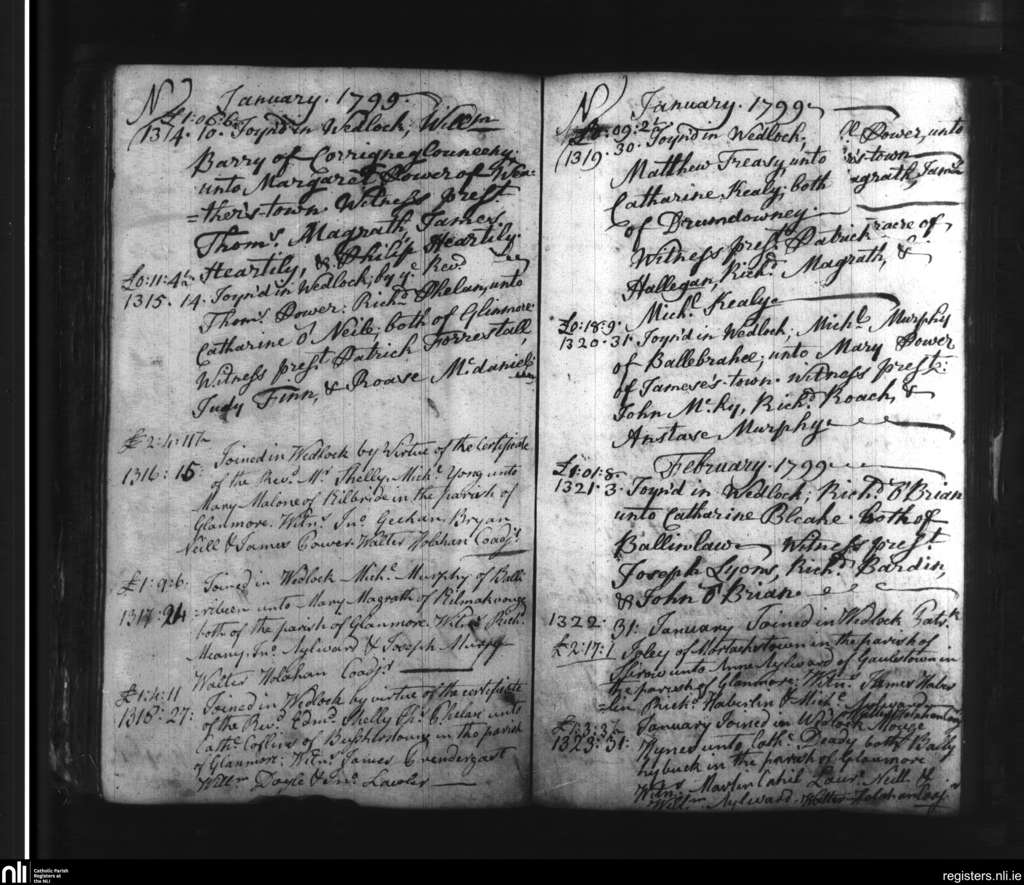 No January. 1799.
£1:06:6
1314. 10. Joyn'd in Wedlock; Willm
Barry of Corrigneglouneeny.
unto Margaret Power of Wea=
=ther's-town. Witness prest.
Thoms. Magrath, James
Heartily, & Philip Heartily.
£0:11:4½
1315. 14. Joyn'd in Wedlock; by ye. Revd.
Thoms. Power: Richd. Phelan, unto
Catharine O'Neile, both of Glinmore
Witness prest. Patrick Forrestall,
Judy Finn, & Roase McDaniel:
£2:4:11½
1316: 15: Joined in Wedlock by Virtue of the Certificate
of the Revd. Mr. Shelly. Michl. Yong unto
Mary Malone of Kilbride in the parish of
Glanmore. Witns. Jno. Geehan, Bryan
Neill & James Power. Walter Holahan Coadjr
£1:9:6.
1317: 24 Joined in Wedlock Michl. Murphy of Balli
=ribeen unto Mary Magrath of
both of the parish of Glanmore. Witns. Richd.
Meany. Jno. Aylward & Joseph
Walter Holahan Coadjr.
£1:4:11
1318: 27: Joined in Wedlock by virtue of the certificate
of the Revd. Edmd. Shelly Phi. Phelan unto
Cathe. of in the parish
of Glanmore: Witns. James Prendergast
Willm Doyle & Jno. Lawler
No January. 1799
£0:09:2½
1319. 30. Joyn'd in Wedlock;
Matthew Treasy, unto
Catharine Kealy, both
of Drumdowney.
Witness prest. Patrick
Hallegan, Richd. Magrath, &
Michl. Kealy
ll Power, unto
r's-town
agrath, James
racre of
£0:18:9.
1320. 31. Joyn'd in Wedlock; Michl. Murphy
of Ballebrahee; unto Mary Power
of Jameses-town. Witness prest:
John McKy, Richd. Roach, &
Anstase Murphy
February. 1799
£1:01:8
1321. 3. Joyn'd in Wedlock; Richd. O'Brian
unto Catharine Bleake. both of
Ballinlaw Witness prest.
Joseph Lyons, Richd. Bardin,
& John O'Brian
1322. 31: January Joined in Wedlock Patk
£2:17:1 Foley of Mortachstown in the parish of
unto Anne Aylward of Gaulstown in
the parish of Glanmore: Witns. James Haber
=lin Richd. Haberlin & Michl. Aylward
Walter Holahan Coadjr
£1:3:3½ January Joined in Wedlock
1323: 31: Hynes unto Cathe. Deady both Bally
hybuck in the parish of Glanmore
Witns. Martin Cahil Laurs. Neill &
Willm Aylward. Walter Holahan Coadjr
nli
Catholic Parish
Registers at
the NLI
registers.nli.ie